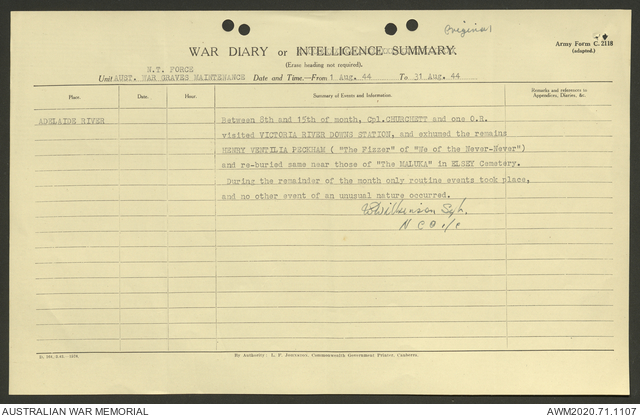 Original
WAR DIARY or INTELLIGENCE SUMMARY.
Army Form C. 2118
(adapted.)
(Erase heading not required).
N.T. FORCE
Unit AUST. WAR GRAVES MAINTENANCE Date and Time.—From 1 Aug. 44 To 31 Aug. 44
Place. Date. Hour. Summary of Events and Information. Remarks and references to
Appendices, Diaries, &c.
ADELAIDE RIVER Between 8th and 15th of month, Cpl. CHURCHETT and one O.R.
visited VICTORIA RIVER DOWNS STATION, and exhumed the remains
HENRY VENTILIA PECKHAM ( "The Fizzer" of "We of the Never-Never")
and re-buried same near those of "The MALUKA" in ELSEY Cemetery.
During the remainder of the month only routine events took place,
and no other event of an unusual nature occurred.
Wilkinson Sgt.
N C O i/c
By Authority: L. F. Johnston, Commonwealth Government Printer, Canberra.
AUSTRALIAN WAR MEMORIAL AWM2020.71.1107